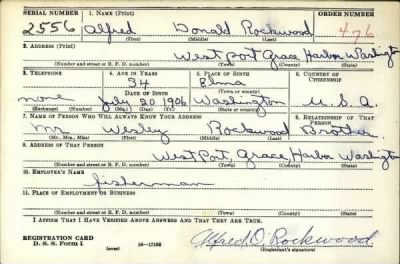 SERIAL NUMBER 1. NAME (Print) ORDER NUMBER
2556 Alfred Donald Rockwood 476
(First) (Middle) (Last)
2. ADDRESS (Print)
West Port Grace Harbor Washington
(Number and street or R. F. D. number) (Town) (County) (State)
3. TELEPHONE 4. AGE IN YEARS 5. PLACE OF BIRTH 6. COUNTRY OF CITIZENSHIP
34 Elma
DATE OF BIRTH (Town or county)
none July 20 1906 Washington U.S.A.
(Exchange) (Number) (Mo.) (Day) (Yr.) (State or country)
7. NAME OF PERSON WHO WILL ALWAYS KNOW YOUR ADDRESS 8. RELATIONSHIP OF THAT PERSON
Mr Wesley Rockwood Brother
(Mr., Mrs., Miss) (First) (Middle) (Last)
9. ADDRESS OF THAT PERSON
West Port Grace Harbor Washington
(Number and street or R. F. D. number) (Town) (County) (State)
10. EMPLOYER'S NAME
fisherman
11. PLACE OF EMPLOYMENT OR BUSINESS
(Number and street or R. F. D. number) (Town) (County) (State)
I AFFIRM THAT I HAVE VERIFIED ABOVE ANSWERS AND THAT THEY ARE TRUE.
REGISTRATION CARD
D. S. S. Form 1 (over) 16-17105 Alfred D. Rockwood
(Registrant's signature)